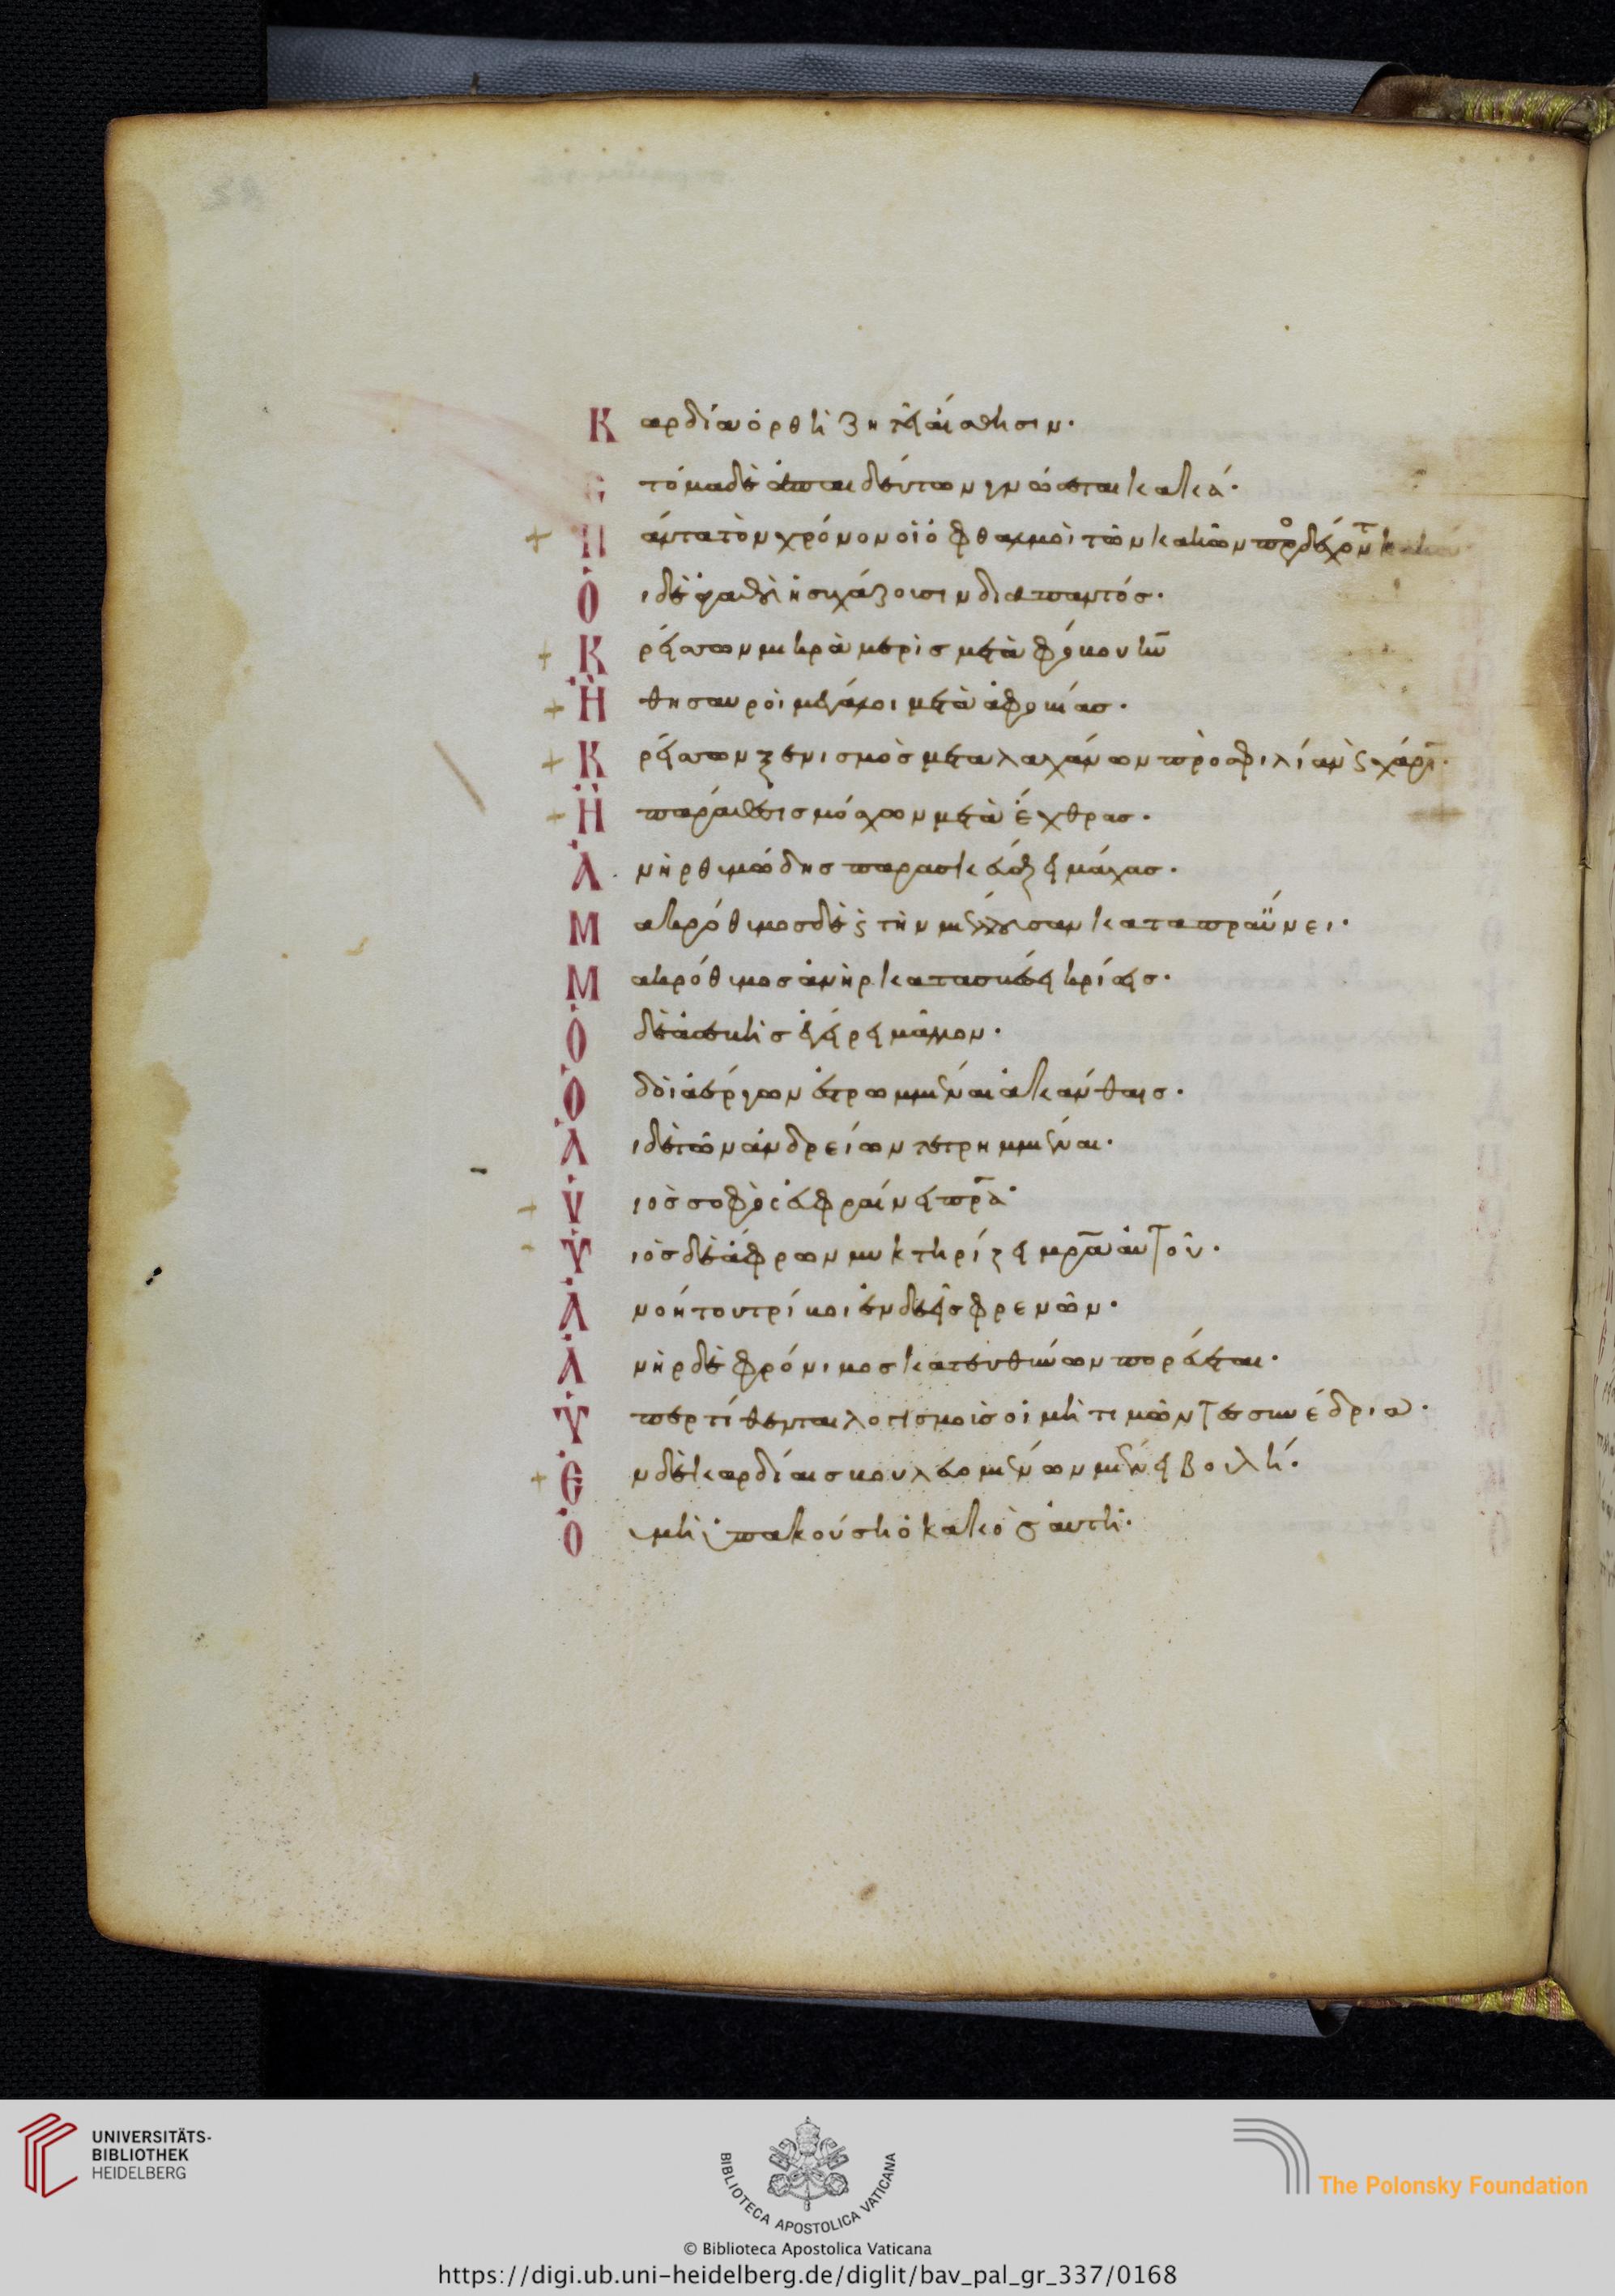 Καρδία ὀρθὴ ζητεῖ αἴσθησιν·
Στόμα δὲ ἀπαιδεύτων γνώσεται κακά·
Πάντα τὸν χρόνον οἱ ὀφθαλμοὶ τῶν κακῶν προσδέχοντ κακά
Ὁι δὲ ἀγαθοὶ ἡσυχάζουσιν διαπαντός·
Κρείσσων μικρὰ μερὶς μετὰ φόβου κυ
Ἢ θησαυροὶ μεγάλοι μετὰ ἀφοβίας·
Κρείσσων ξενισμὸς μετα λαχάνων πρὸς φιλίαν ϗ χάριν·
Ἢ παράθεσις μόσχων μετὰ ἔχθρας·
Ἀνὴρ θυμώδης παρασκευάζει μάχας·
Μακρόθυμος δὲ ϗ τὴν μέλλουσαν καταπραΰνει·
Μακρόθυμος ἀνὴρ κατασβέσει κρίσεις·
Ὁ δὲ ἀσεβὴς ἐγείρει μᾶλλον·
Ὁδοὶ ἀέργων ἐστρωμμέναι ἀκάνθαις·
Ἁι δὲ τῶν ἀνδρείων τετρημμέναι·
Υἱὸς σοφὸς εὐφραίνει πρα·
Υἱὸς δὲ ἄφρων μυκτηρίζει μρα αὐτοῦ·
Ἀνοήτου τρίβοι ἐνδεεῖς φρενῶν·
Ἀνὴρ δὲ φρόνιμος κατευθύνων πορεύεται·
Ὑπερτίθενται λογισμοὺς οἱ μὴ τιμῶντες συνέδρια·
Ἐν δὲ καρδίαις βουλευομένων μένει βουλή·
Ὀυ μὴ ὑπακούσῃ ὁ κακὸς αὐτῇ·
UNIVERSITÄTS-
BIBLIOTHEK
HEIDELBERG
BIBLIOTECA APOSTOLICA VATICANA
The Polonsky Foundation
© Biblioteca Apostolica Vaticana
https://digi.ub.uni-heidelberg.de/diglit/bav_pal_gr_337/0168